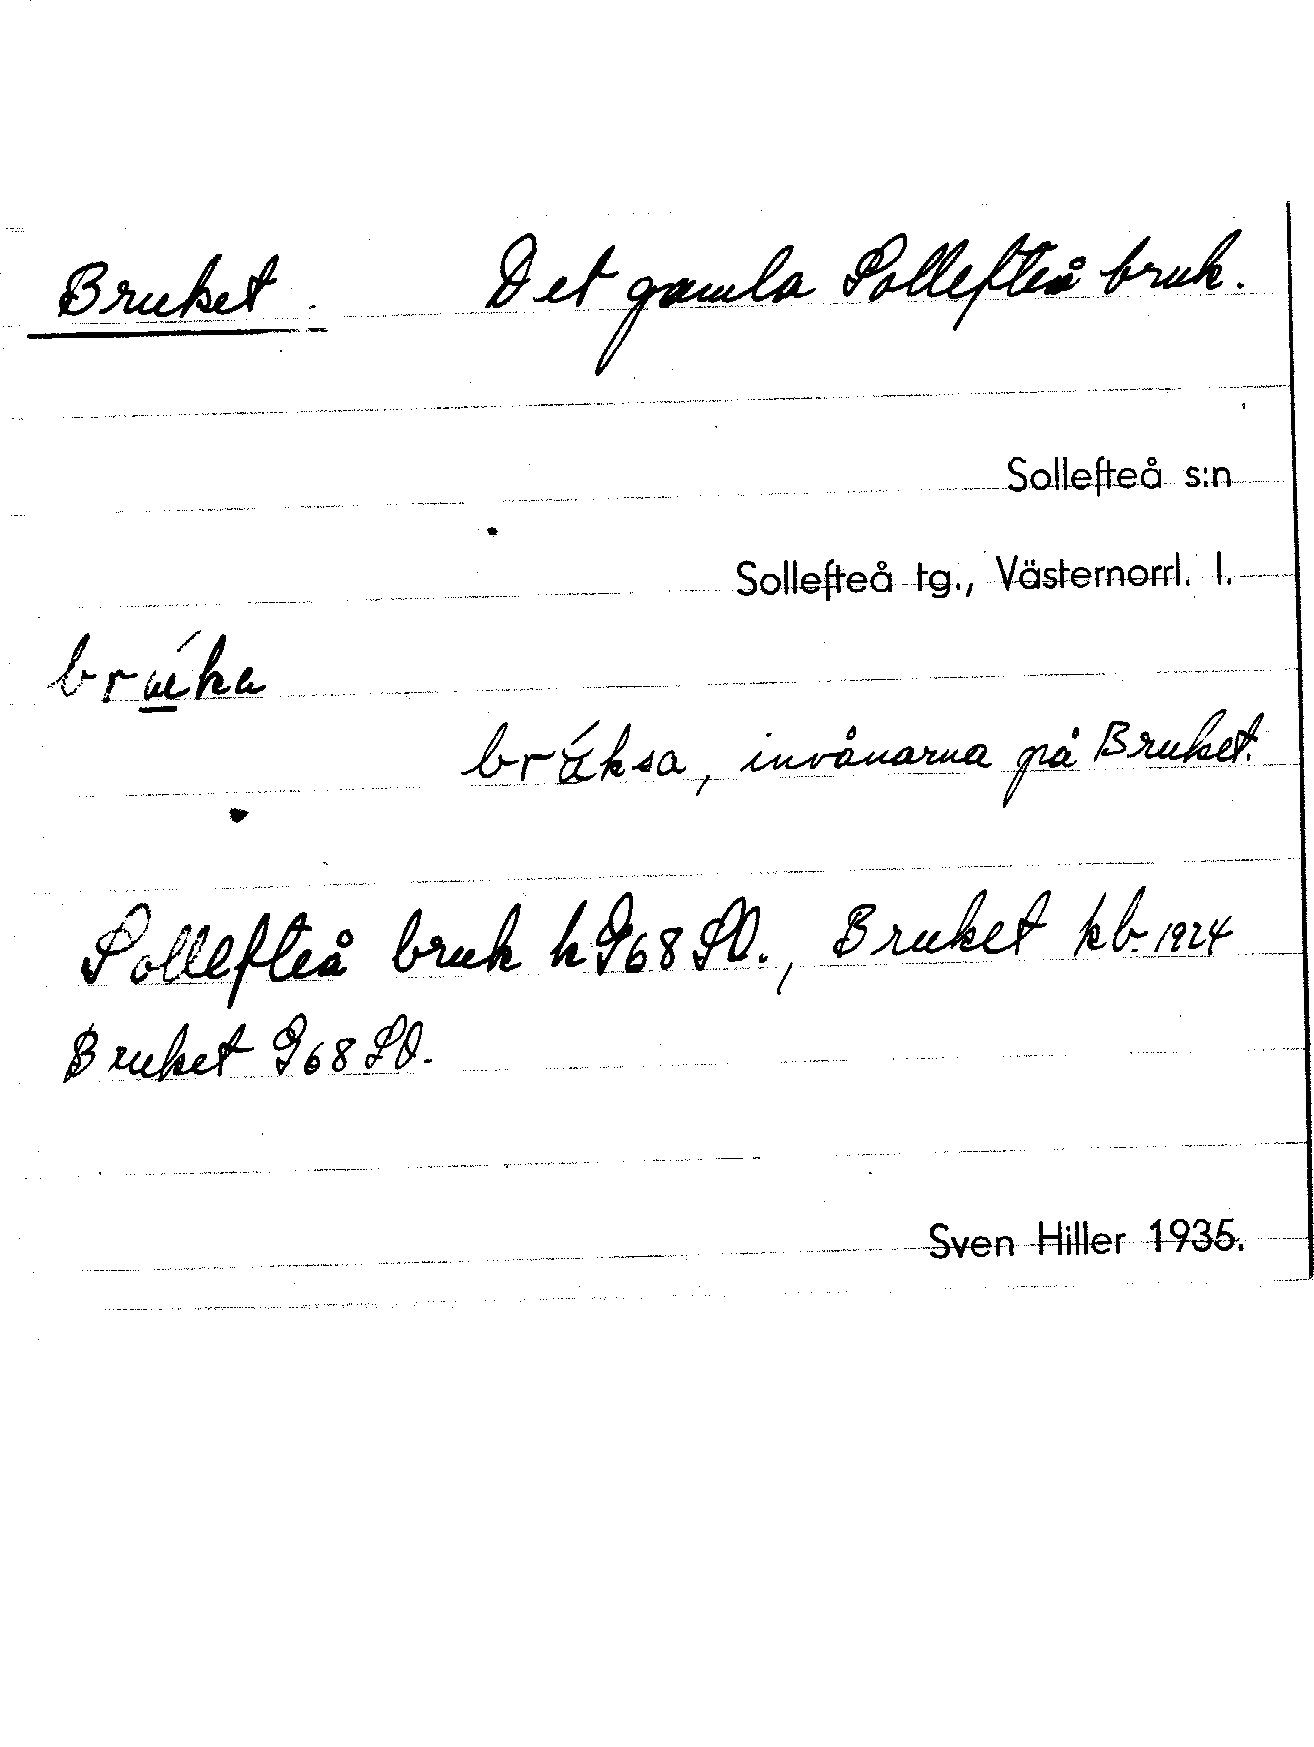 Bruket. Det gamla Sollefteå bruk.
Sollefteå s:n
Sollefteå tg., Västernorrl. l.
brúka
brúksa, invånarna på Bruket.
Sollefteå bruk h G68SO., Bruket kb. 1924
Bruket G68SO.
Sven Hiller 1935.